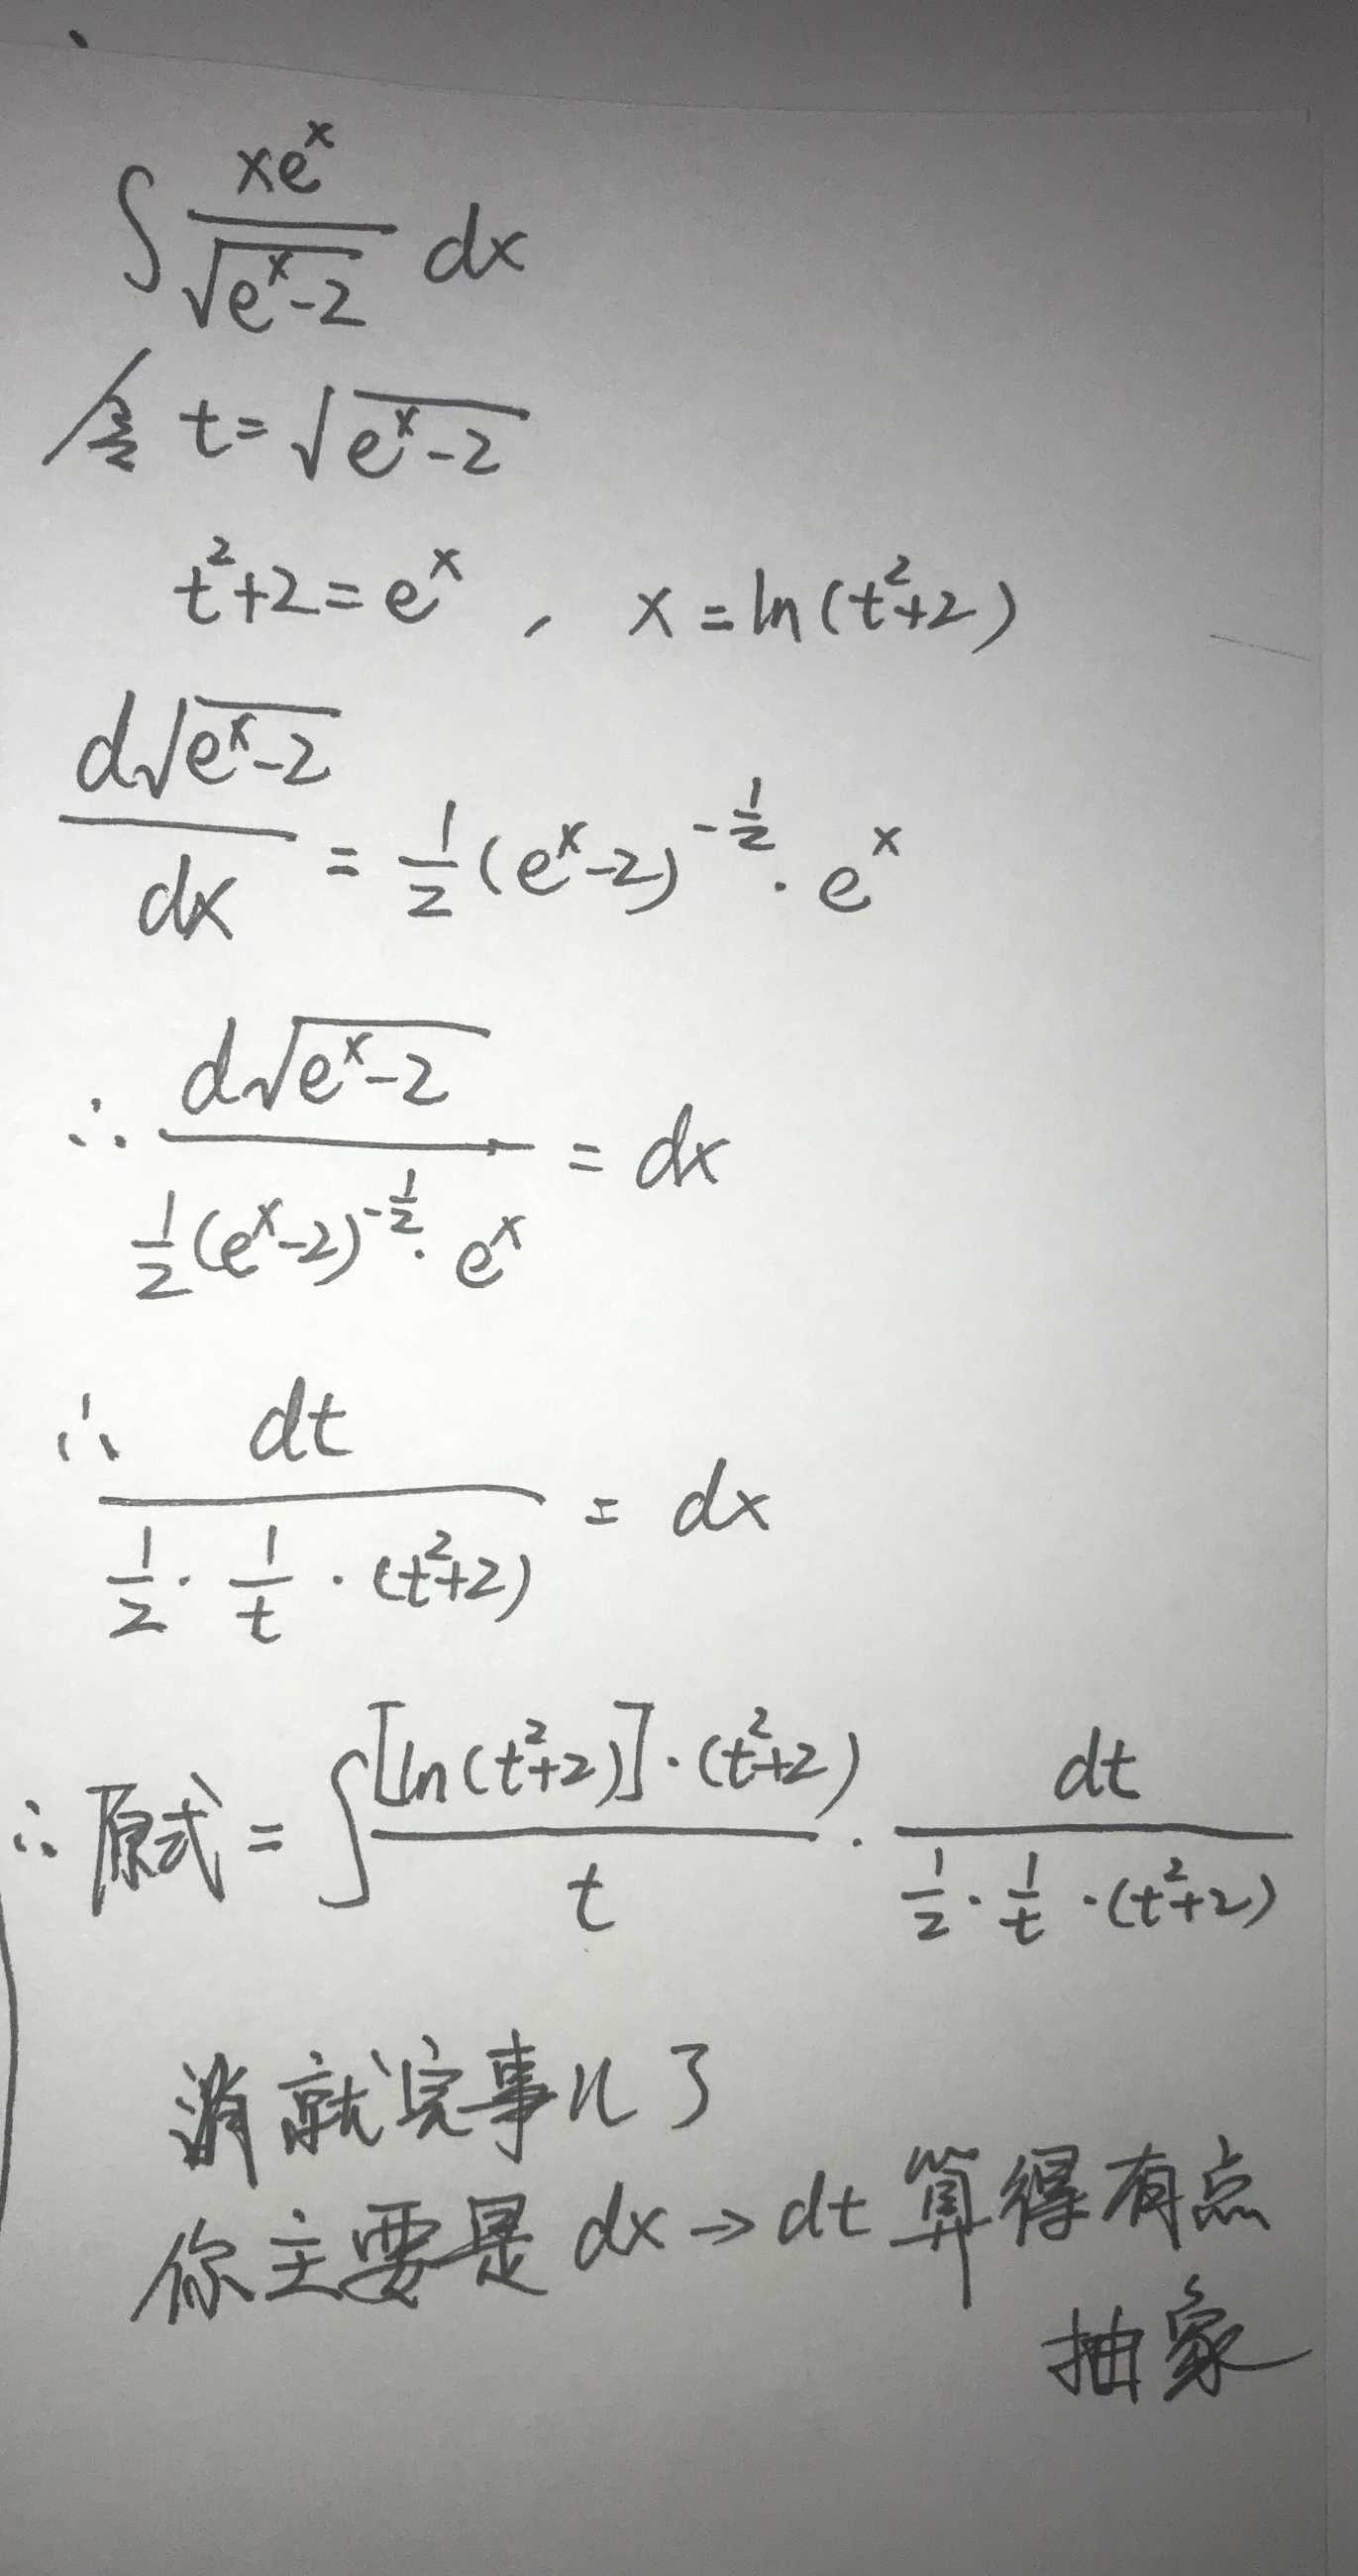 ∫ xeˣ/√(eˣ-2) dx
令 t=√(eˣ-2)
t²+2=eˣ , x=ln(t²+2)
d√(eˣ-2)/dx = 1/2(eˣ-2)^(-1/2)·eˣ
∴ d√(eˣ-2)/(1/2(eˣ-2)^(-1/2)·eˣ) = dx
∴ dt/(1/2·1/t·(t²+2)) = dx
∴原式=∫ [ln(t²+2)]·(t²+2)/t · dt/(1/2·1/t·(t²+2))
消就完事儿了
你主要是dx→dt算得有点
抽象